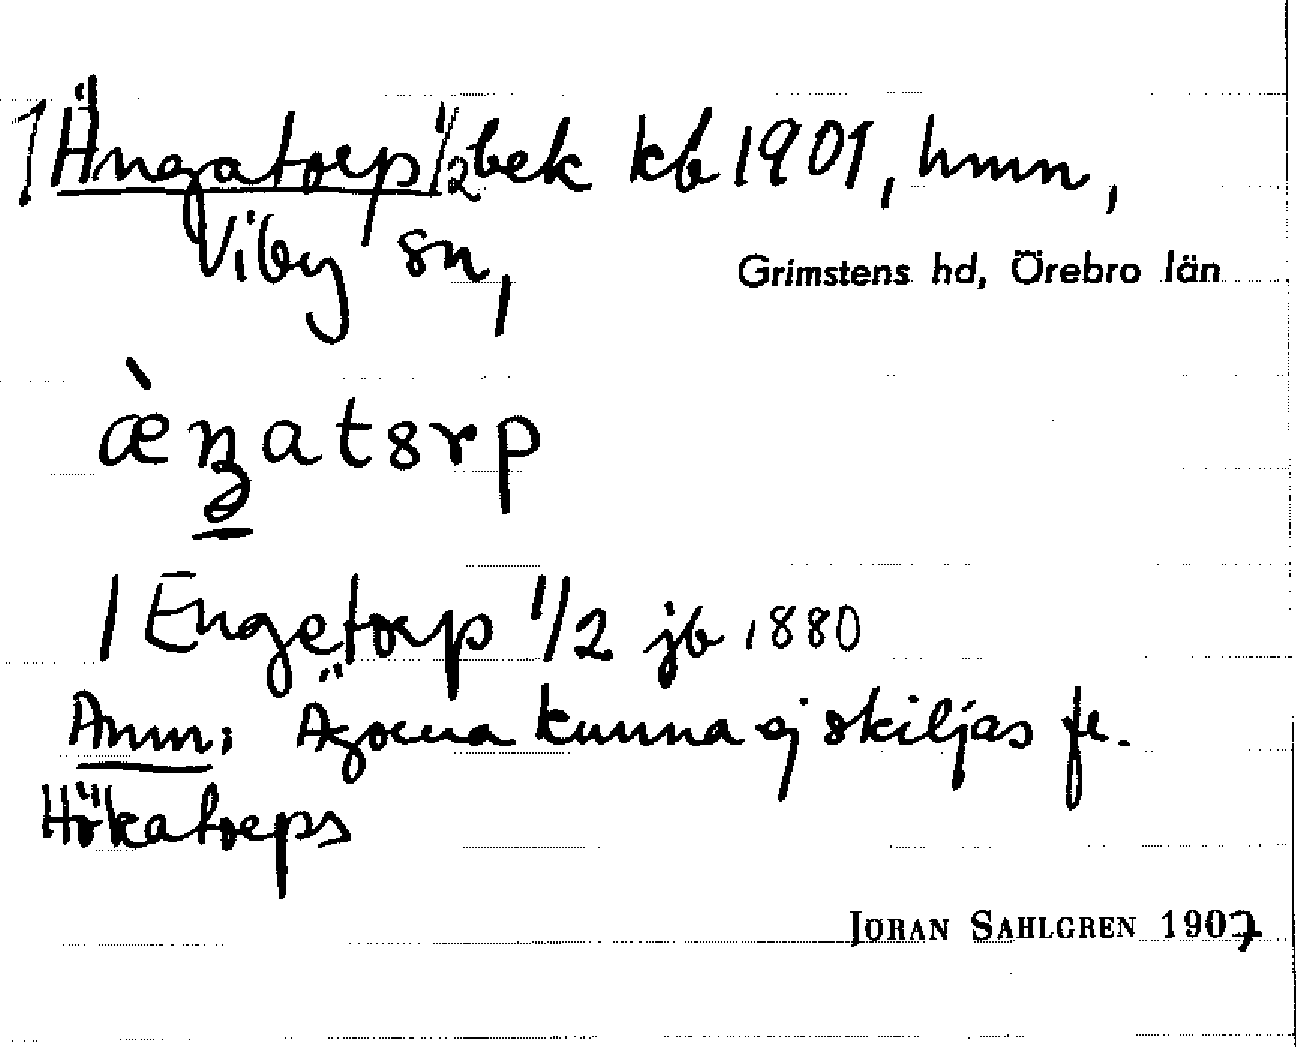 1 Ängatorp 1/2 bek kb 1901, hmn,
Viby sn,
Grimstens hd, Örebro län
æ̀ŋatsrp
1 Engetorp 1/2 jb 1880
Anm: Ägorna kunna ej skiljas fr.
Hökatorps
JÖRAN SAHLGREN 1907